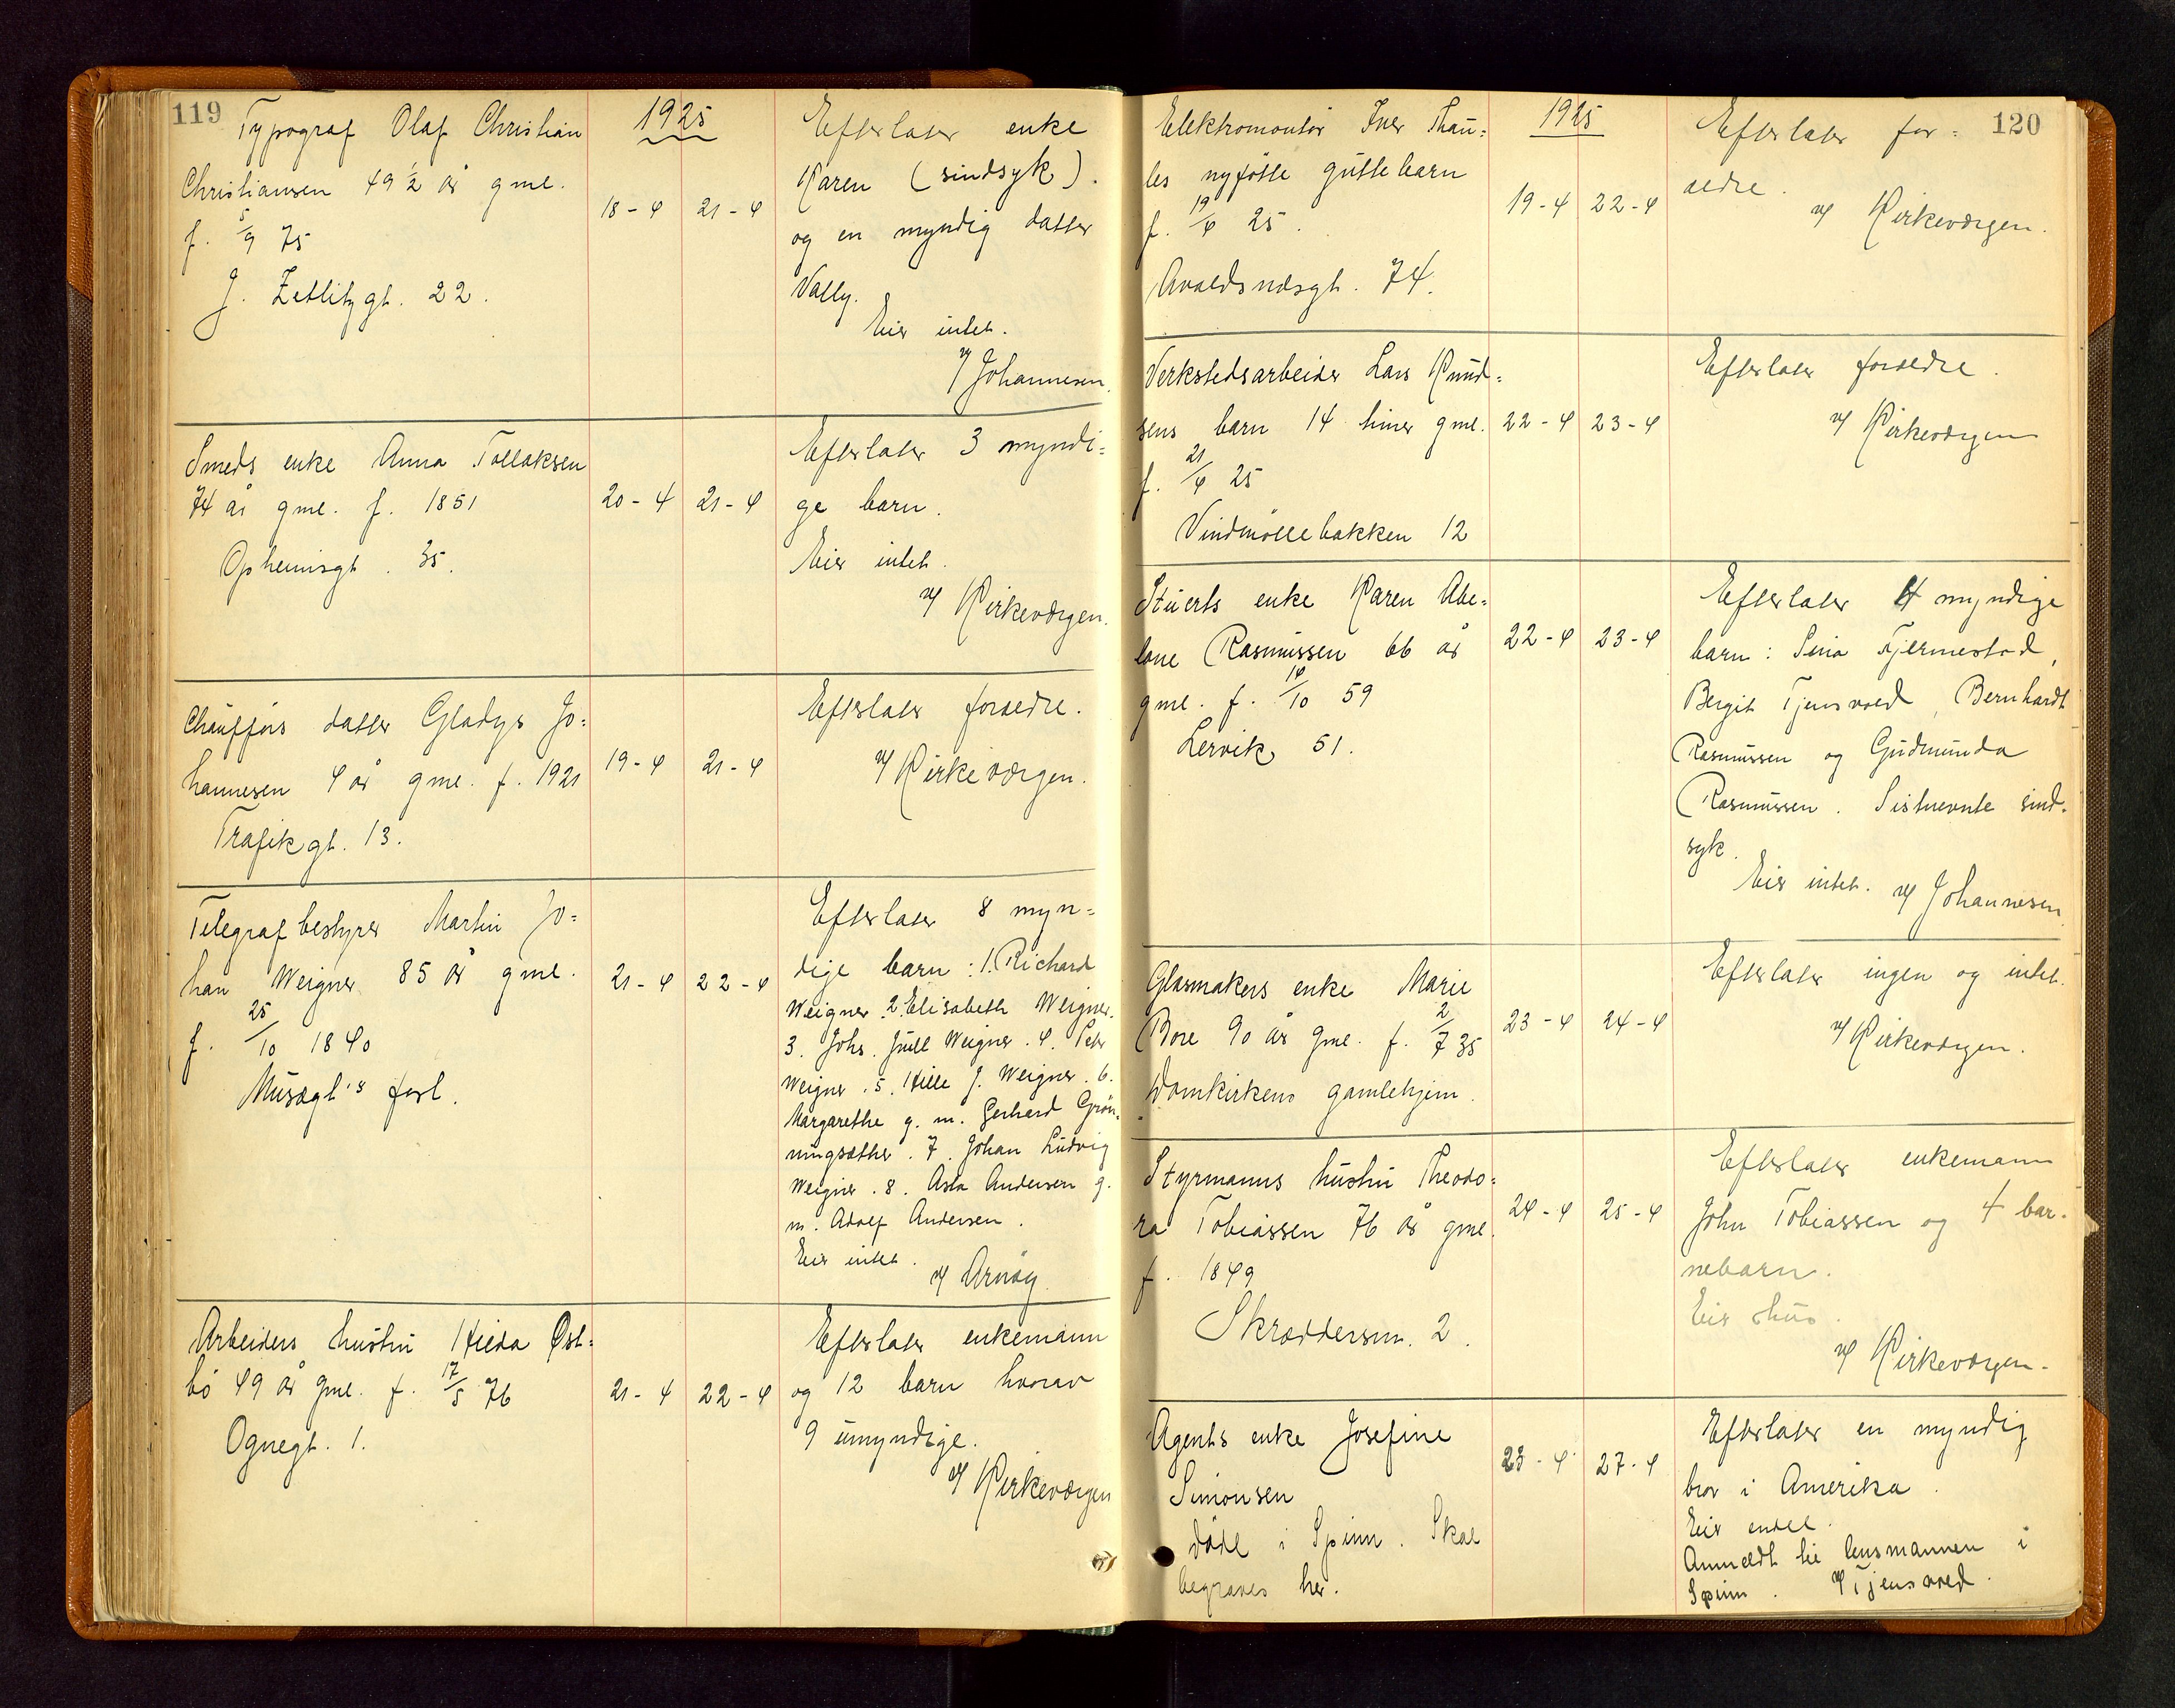 119
Typograf Olaf Christian
Christiansen 49 1/2 år gml.
f. 5/9 75
J. Zetlitzgt. 22.
1925
18-4 21-4
Efterlater enke
Karen (sindsyk).
og en myndig datter
Vally.
Eier intet.
v/ Johannesen.
Smeds enke Anna Tollaksen
74 år gml. f. 1851
Opheimsgt. 35.
20-4 21-4
Efterlater 3 myndi=
ge barn.
Eier intet.
v/ Kirkeværgen.
Chaufførs datter Gladys Jo=
hannesen 4 år gml. f. 1921
Trafikgt. 13.
19-4 21-4
Efterlater forældre.
v/ Kirkeværgen.
Telegrafbestyrer Martin Jo=
han Weigner 85 år gml.
f. 25/10 1840
Musægt's forl.
21-4 22-4
Efterlater 8 myn=
dige barn: 1. Richard
Weigner. 2. Elisabeth Weigner.
3. Johs. Juell Weigner. 4. Peter
Weigner. 5. Hille J. Weigner. 6.
Margarethe g. m. Gerhard Grøn=
ningsæther. 7. Johan Ludvig
Weigner. 8. Asta Andersen g.
m. Adolf Andersen.
Eier intet.
v/ Arnøy
Arbeiders hustru Hilda Øst=
bø 49 år gml. f. 17/5 76
Ognegt. 1.
21-4 22-4
Efterlater enkemann
og 12 barn hvorav
9 umyndige.
v/ Kirkeværgen
120
Elektromontør Iver Thau=
les nyfødte guttebarn
f. 19/4 25.
Avaldsnesgt. 74.
1925
19-4 22-4
Efterlater for=
ældre.
v/ Kirkeværgen.
Verkstedsarbeider Lars Knud=
sens barn 14 timer gml.
f. 21/4 25
Vindmøllebakken 12
22-4 23-4
Efterlater forældre.
v/ Kirkeværgen
Stuerts enke Karen Abe=
lone Rasmussen 66 år
gml. f. 14/10 59
Lervik 51.
22-4 23-4
Efterlater 4 myndige
barn: Sina Tjermestad,
Bergit Tjensvold, Bernhardt
Rasmussen og Gudmunda
Rasmussen. Sistnevnte sind-
syk.
Eier intet. v/ Johannesen
Glasmakers enke Marie
Bore 90 år gml. f. 2/7 35
Domkirkens gamlehjem.
23-4 24-4
Efterlater ingen og intet.
v/ Kirkeværgen.
Styrmanns hustru Theodo=
ra Tobiassen 76 år gml.
f. 1849
Skræddersm. 2.
24-4 25-4
Efterlater enkemann
John Tobiassen og 4 bar-
nebarn.
Eier hus.
v/ Kirkeværgen.
Agents enke Josefine
Simonsen
død i Spinn. Skal
begraves her.
23-4 27-4
Efterlater en myndig
bror i Amerika.
Eier endel.
Anmeldt til lensmannen i
Spinn. v/ Tjensvold.